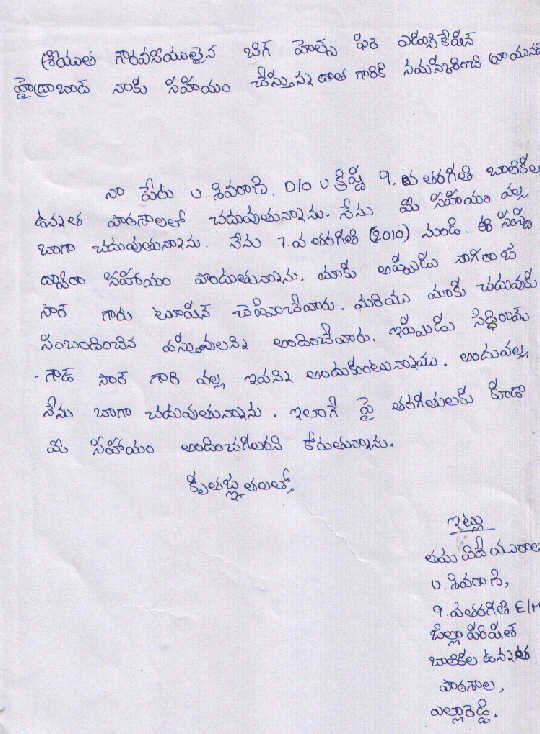 శ్రీయుత గౌరవనీయులైన బిగ్ హెల్ప్ ఫర్ ఎడ్యుకేషన్
హైద్రాబాద్ నాకు సహాయం చేస్తున్న దాత గారికి నమస్కరించి వ్రాయునది
నా పేరు ౮ శివరాణి. D/O ౮ క్రిష్ణ 9. వ తరగతి బాలికల
ఉన్నత పాఠశాలలో చదువుతున్నాను. నేను మీ సహాయం వల్ల
బాగా చదువుతున్నాను. నేను 7.వ తరగతి (2010) నుండి ఈ సంస్థ
ద్వారా సహాయం పొందుతున్నాను. మాకు అప్పుడు
సార్ గారు ట్యూషన్ చెప్పించేవారు. మరియు మాకు చదువుకు
సంబంధించిన వస్తువులన్ని అందించేవారు. ఇప్పుడు సిద్ధిరామ్
గౌడ్ సార్ గారి వల్ల ఇవన్ని అందుకుంటున్నాము. అందువల్ల
నేను బాగా చదువుతున్నాను. ఇలాగే పై తరగతులకు కూడా
మీ సహాయం అందించగలరని కోరుతున్నాను.
కృతజ్ఞతలతో,
ఇట్లు
తమ విదేయురాలు
౮. శివరాణి,
9. వ తరగతి E/M
జిల్లా పరిషత్
బాలికల ఉన్నత
పాఠశాల,
ఎల్లారెడ్డి.